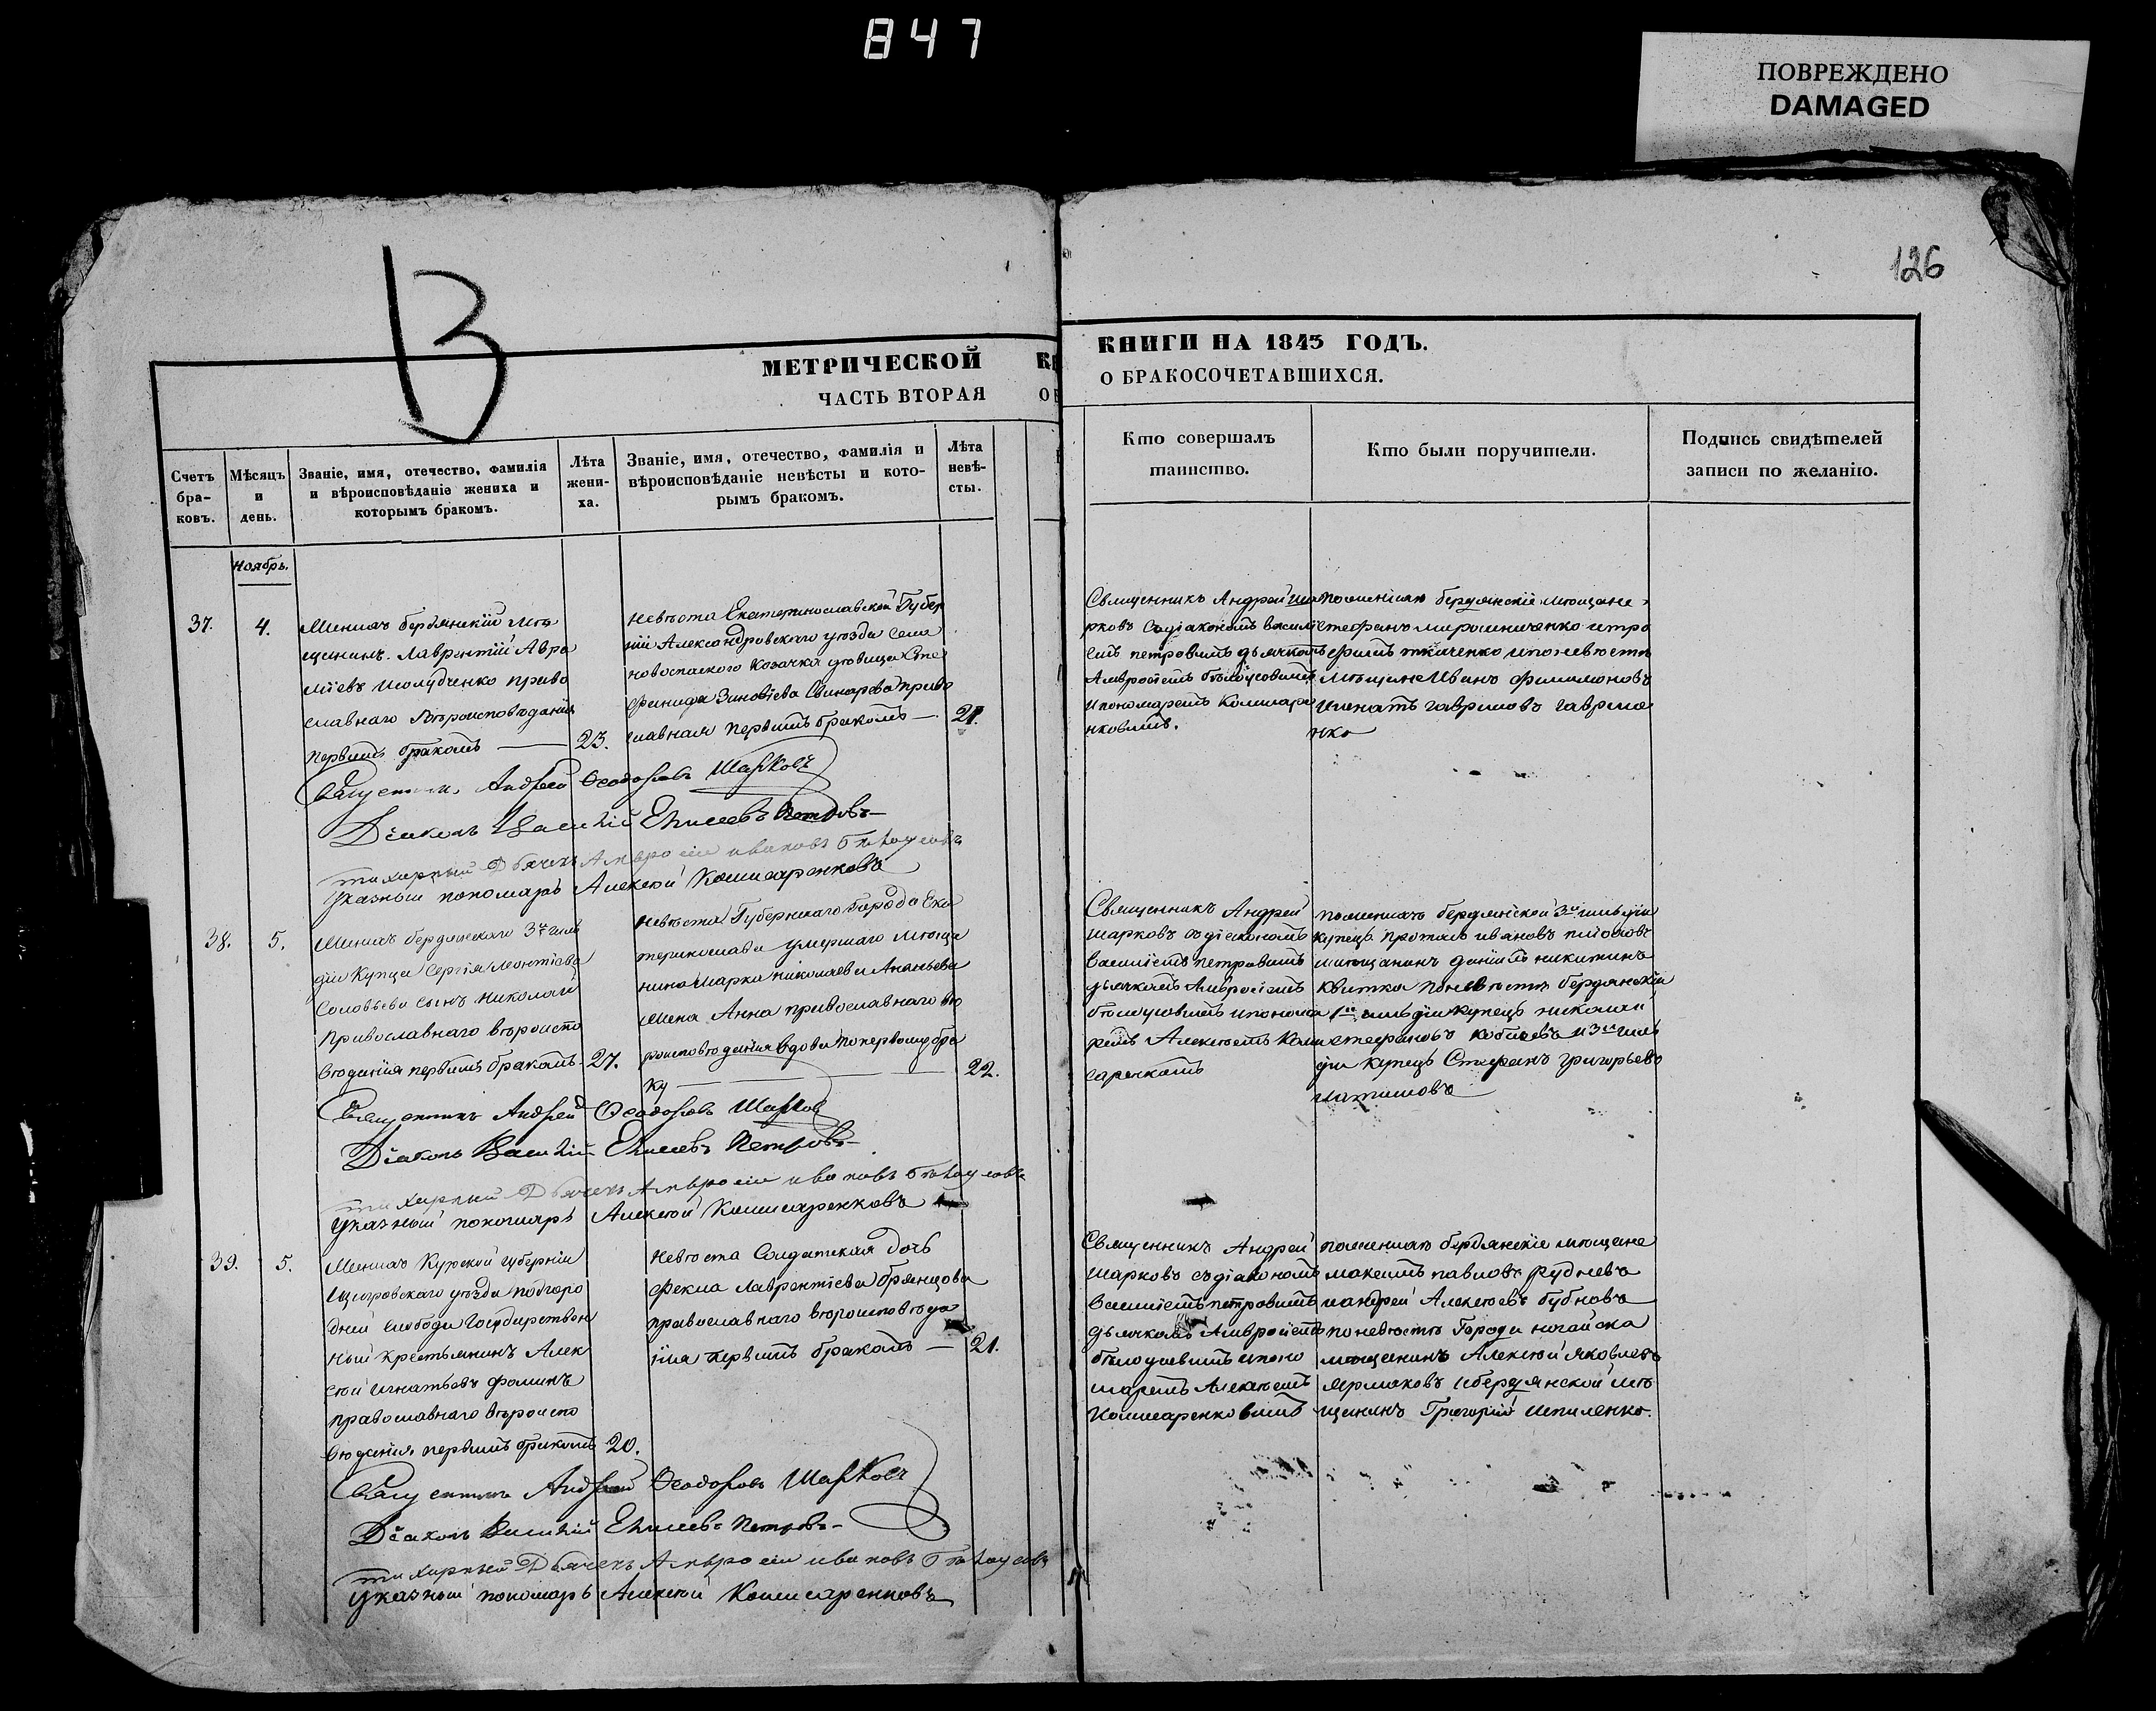 847
ПОВРЕЖДЕНО
DAMAGED
126
В
МЕТРИЧЕСКОЙ
ЧАСТЬ ВТОРАЯ
КНИГИ НА 1843 ГОДЪ.
О БРАКОСОЧЕТАВШИХСЯ.
Счетъ бра-ковъ.
Мѣсяцъ и день.
Званіе, имя, отечество, фамилія
и вѣроисповѣданіе жениха и
которымъ бракомъ.
Лѣта жени-ха.
Званіе, имя, отечество, фамилія и
вѣроисповѣданіе невѣсты и кото-
рымъ бракомъ.
Лѣта невѣ-сты.
Кто совершалъ
таинство.
Кто были поручители.
Подпись свидѣтелей
записи по желанію.
Ноябрь.
37.
4.
Женихъ бердянскій мѣ
щанинъ Лаврентій Авра
міевъ право
славнаго Вѣроисповѣданія
первымъ бракомъ
23.
невѣста Екатеринославской Губер
ніи Александровскаго уѣзда села
новоспаского Козачка
Зиновіева право
славная первымъ бракомъ
21.
Священникъ Андрей Ша
рковъ съ діакономъ васілі
емъ петровымъ дьячкомъ
Амвросіемъ бѣлоусовымъ
и пономаремъ Комисаре
нковымъ.
по женихѣ бердянскіе мѣщане
стефанъ мирошниченко и тро
фимъ ткаченко и по невѣстѣ
мѣщане Иванъ филимоновъ
и игнатъ гавриловъ гаврилე
нко
Священникъ Андрей Ѳеодоровъ Шарковъ
Діаконъ Василій Елисеевъ Петровъ
стихарный Дьячекъ Амвросіи ивановъ Бѣлоусовъ
указный пономарь Алексѣй Комисаренковъ
38.
5.
Женихъ бердянскаго 3й гиль
діи Купца Сергія Леонтіева
Соловьева сынъ Николай
Православнаго вѣроиспо
вѣданія первымъ бракомъ
27.
невѣста Губернскаго Города Ека
теринослава умершаго мѣща
нина Марка николаева Ананьева
жена Анна православнаго вѣ
роисповѣданія вдова по первому бра
ку
22.
Священникъ Андрей
Шарковъ съ діакономъ
василіемъ петровымъ
дьячкомъ Амвросіемъ
бѣлоусовымъ и понома
ремъ Алексѣемъ Коми
саренкомъ
по женихѣ бердянской 3й гильдіи
купецъ ивановъ
и мѣщанинъ даніилъ никитинъ
квитка по невѣстѣ бердянскій
гильдіи купецъ николай
стефановъ кобызевъ и 3й гиль
діи купецъ Стефанъ григорьевъ
Священникъ Андрей Ѳеодоровъ Шарковъ
Діаконъ Василій Елисеевъ Петровъ
стихарный Дьячекъ Амвросіи ивановъ Бѣлоусовъ
указный пономарь Алексѣй Комисаренковъ
39.
5.
Женихъ Курской губерніи
Щигровскаго уѣзда подгоро
дней слободы Государствен
ный крестьянинъ Алек
сѣй игнатьевъ фоминъ
православнаго вѣроиспо
вѣданія первымъ бракомъ
20.
Невѣста Солдатская дочь
фекла лаврентіева брянцова
православнаго вѣроисповѣда
нія первымъ бракомъ
21.
Священникъ Андрей
Шарковъ съ діакономъ
василіемъ петровымъ
дьячкомъ Амвросіемъ
бѣлоусовымъ и поно
маремъ Алексѣемъ
Комисаренковымъ
по женихѣ бердянскіе мѣщане
максимъ павловъ рудневъ
и андрей Алексѣевъ бубновъ
по невѣстѣ Города ногайска
мѣщанинъ Алексѣй яковлевъ
ярмаковъ и бердянской мѣ
щанинъ Григорій
Священникъ Андрей Ѳеодоровъ Шарковъ
Діаконъ Василій Елисеевъ Петровъ
стихарный Дьячекъ Амвросіи ивановъ Бѣлоусовъ
указный пономарь Алексѣй Комисаренковъ